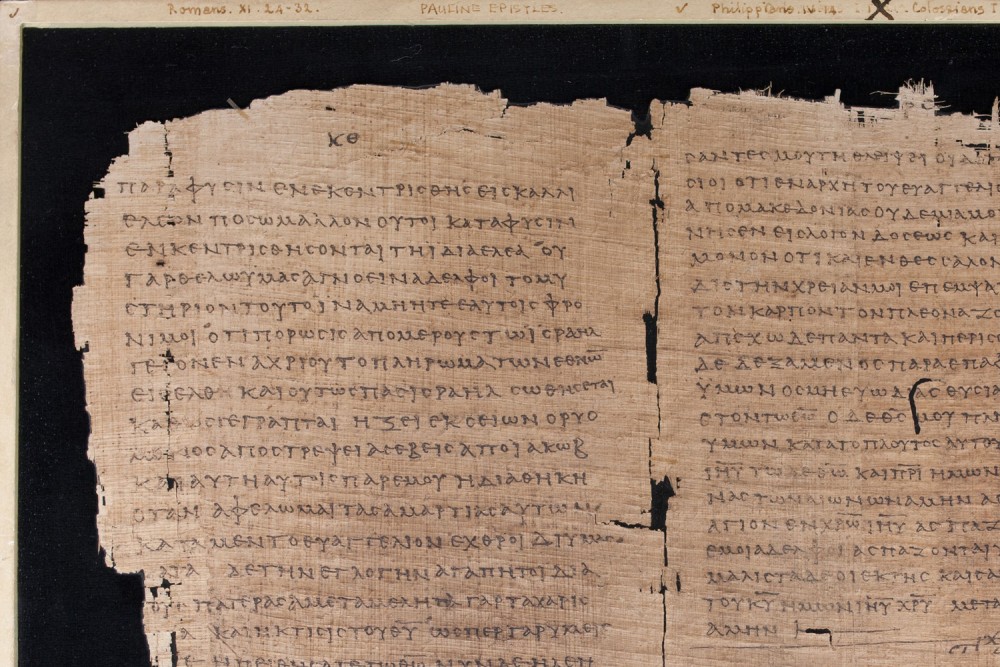 Romans. XI. 24-32.
PAULINE EPISTLES.
Philippians. IV. 14.
Colossians I
ΚΘ
ΠΑΡΑΦΥΣΙΝ ΕΝΕΚΕΝΤΡΙΣΘΗΣ ΕΙΣ ΚΑΛΛΙ
ΕΛΕΟΝ ΠΟΣΩ ΜΑΛΛΟΝ ΟΥΤΟΙ ΚΑΤΑΦΥΣΙΝ
ΕΝΙΚΕΝΤΡΙΣΘΗΣΟΝΤΑΙ ΤΗ ΙΔΙΑ ΕΛΕΑ ΟΥ
ΓΑΡ ΘΕΛΩ ΥΜΑΣ ΑΓΝΟΕΙΝ ΑΔΕΛΦΟΙ ΤΟ ΜΥ
ΣΤΗΡΙΟΝ ΤΟΥΤΟ ΙΝΑ ΜΗ ΗΤΕ ΕΑΥΤΟΙΣ ΦΡΟ
ΝΙΜΟΙ ΟΤΙ ΠΟΡΩΣΙΣ ΑΠΟ ΜΕΡΟΥΣ ΤΩ ΙΣΡΑΗΛ
ΓΕΓΟΝΕΝ ΑΧΡΙ ΟΥ ΤΟ ΠΛΗΡΩΜΑ ΤΩΝ ΕΘΝΩ̅
ΕΙΣΕΛΘΗ ΚΑΙ ΟΥΤΩΣ ΠΑΣ ΙΣΡΑΗΛ ΣΩΘΗΣΕΤΑΙ
ΚΑΘΩΣ ΓΕΓΡΑΠΤΑΙ ΗΞΕΙ ΕΚ ΣΕΙΩΝ Ο ΡΥΟ
ΜΕΝΟΣ ΑΠΟΣΤΡΕΨΕΙ ΑΣΕΒΕΙΣ ΑΠΟ ΙΑΚΩΒ
ΚΑΙ ΑΥΤΗ ΑΥΤΟΙΣ ΠΑΡ ΕΜΟΥ Η ΔΙΑΘΗΚΗ
ΟΤΑΝ ΑΦΕΛΩΜΑΙ ΤΑΣ ΑΜΑΡΤΙΑΣ ΑΥΤΩΝ
ΚΑΤΑ ΜΕΝ ΤΟ ΕΥΑΓΓΕΛΙΟΝ ΕΧΘΡΟΙ ΔΙ ΥΜΑΣ
ΚΑΤΑ ΔΕ ΤΗΝ ΕΓΛΟΓΗΝ ΑΓΑΠΗΤΟΙ ΔΙΑ
ΤΟΥΣ ΠΑΤΕΡΑΣ ΑΜΕΤΑΜΕΛΗΤΑ ΓΑΡ ΤΑ ΧΑΡΙΣ
ΚΑΙ Η ΚΤΙΣΙΣ ΤΟΥ ΘΥ̅ ΩΣΠΕΡ ΓΑΡ ΥΜΕΙΣ
ΓΑΝΤΕΣ ΜΟΥ ΤΗ ΘΛΕΙΨΕΙ ΟΙΔΑ
ΣΙΟΙ ΟΤΙ ΕΝ ΑΡΧΗ ΤΟΥ ΕΥΑΓΓΕΛΙΟ
ΑΠΟ ΜΑΚΕΔΟΝΙΑΣ ΟΥΔΕΜΙΑ ΜΟΙ
ΝΗΣΕΝ ΕΙΣ ΛΟΓΟΝ ΔΟΣΕΩΣ ΚΑΙ
ΜΟΝΟΝ ΟΤΙ ΚΑΙ ΕΝ ΘΕΣΣΑΛΟΝ
ΔΙΣ ΤΗΝ ΧΡΕΙΑΝ ΜΟΙ ΕΠΕΜΨΑ
ΤΟΝ ΚΑΡΠΟΝ ΤΟΝ ΠΛΕΟΝΑΖΟ
ΑΠΕΧΩ ΔΕ ΠΑΝΤΑ ΚΑΙ ΠΕΡΙΣΣ
ΔΕ ΔΕΞΑΜΕΝΟΣ ΠΑΡΑ ΕΠΑ
ΥΜΩΝ ΟΣΜΗ ΕΥΩΔΙΑΣ ΘΥΣΙΑ
ΣΤΟΝ ΤΩ ΘΩ̅ Ο ΔΕ ΘΣ̅ ΜΟΥ ΠΛΗ
ΥΜΩΝ ΚΑΤΑ ΤΟ ΠΛΟΥΤΟΣ ΑΥΤΟΥ
ΙΗΥ̅ ΤΩ ΔΕ ΘΩ̅ ΚΑΙ ΠΡΙ̅ ΗΜΩΝ
ΝΑΣ ΤΩΝ ΑΙΩΝΩΝ ΑΜΗΝ ΑΣ
ΑΓΙΟΝ ΕΝ ΧΡΩ̅ ΙΗΥ̅ ΑΣΠΑΖ
ΕΜΟΙ ΑΔΕΛΦΟΙ ΑΣΠΑΖΟΝΤΑΙ
ΜΑΛΙΣΤΑ ΔΕ ΟΙ ΕΚ ΤΗΣ ΚΑΙΣΑ
ΤΟΥ ΚΥ̅ ΗΜΩΝ ΙΗΥ̅ ΧΡΥ̅ ΜΕΤΑ
ΑΜΗΝ